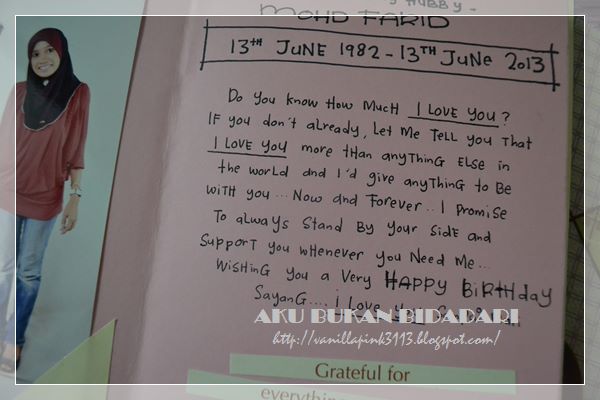 HUBBY -
MOHD FARID
13TH JUNE 1982 - 13TH JUNE 2013
Do you know How mucH I LOVE YOU?
IF you don't aLready, Let me TeLL you THat
I LOVE YOU more tHan anyTHinG ELse in
the worLd and I'd Give anyTHinG to Be
wiTH you... Now and Forever.. I Promise
To aLways Stand By your Side and
Support you wHenever you Need Me...
WisHinG you a Very HAPPY BiRTHday
SayanG.... i Love You
AKU BUKAN BIDADARI
http://vanillapink3113.blogspot.com/
Grateful for
everything